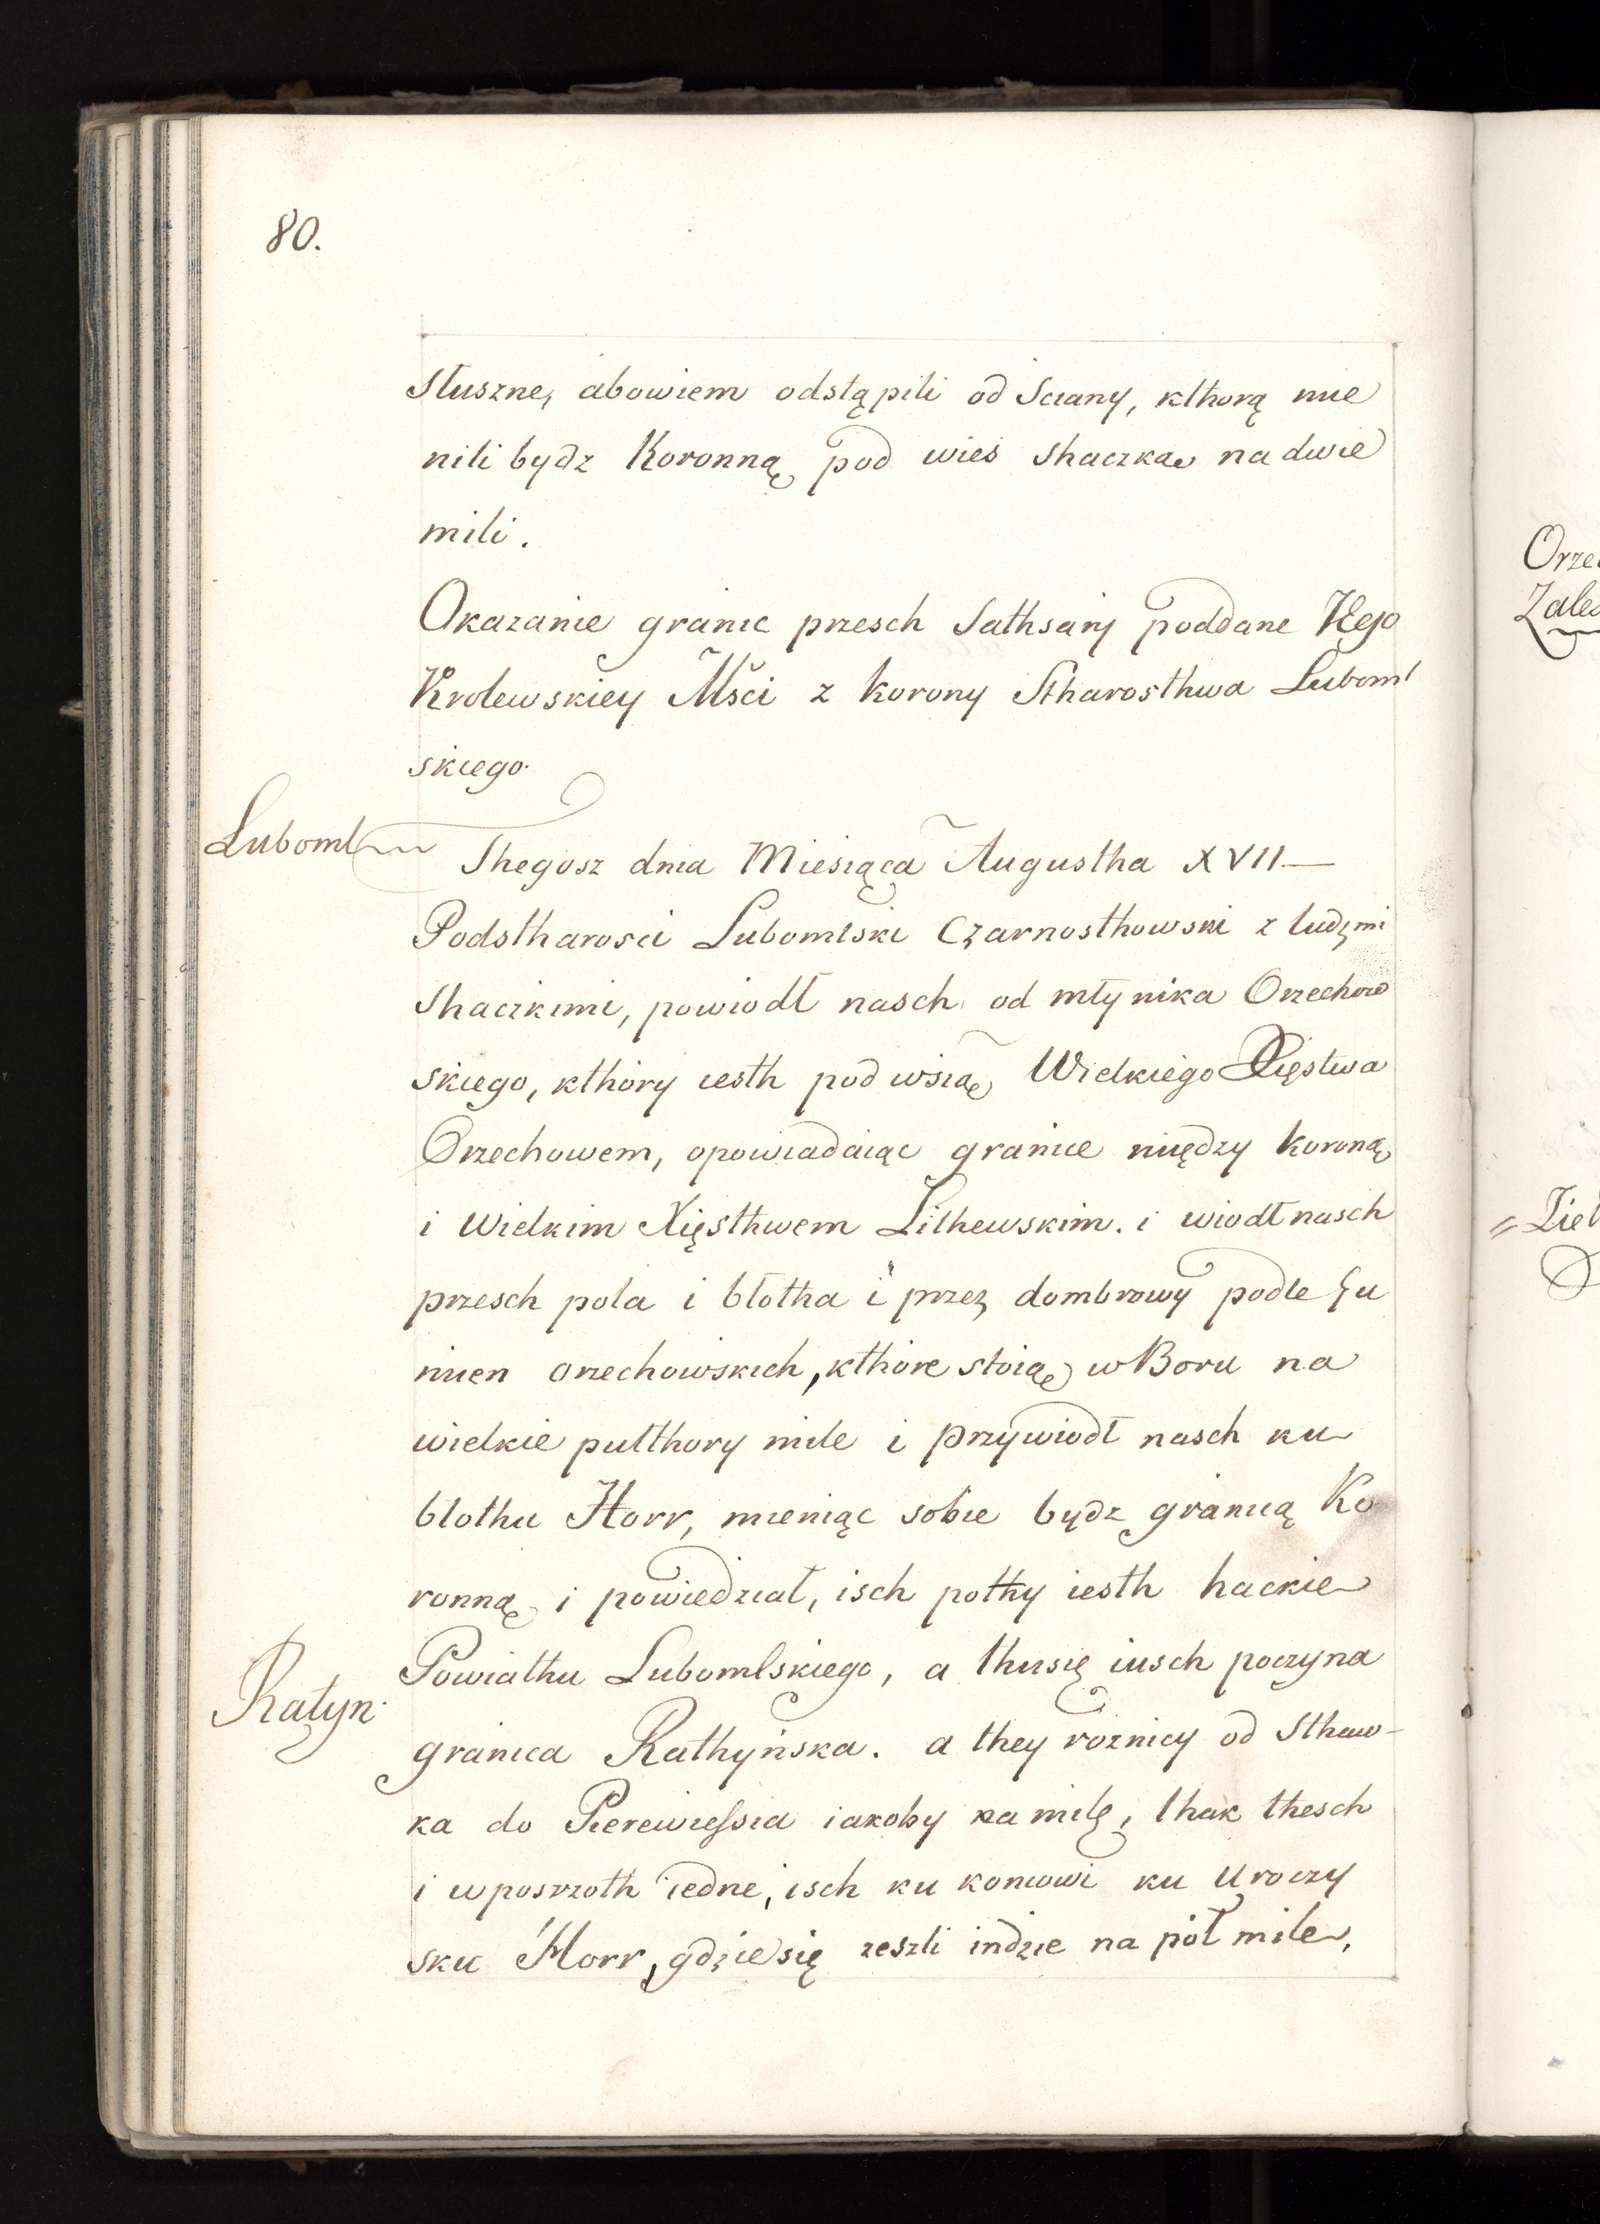 80.
słuszne, abowiem odstąpili od sciany, kthorą mie
nili bydz Koronną pod wies Shaczka na dwie
mili.
Okazanie granic przesch Sathsany poddane
Krolewskiey Mści z korony Stharosthwa Luboml
skiego.
Luboml
Thegosz dnia Miesiąca Augustha XVII —
Podstharosci Lubomlski Czarnosthowski z ludzmi
Shaczkimi, powiodł nasch od młynika Orzechow
skiego, kthóry iesth pod wsią Wielkiego Xięstwa
Orzechowem, opowiadaiąc granice między koroną
i Wielkim Xięsthwem Lithewskim. i wiodł nasch
przesch pola i błotha i przez dombrowy podle Gu
mien orzechowskich, kthóre stoią w Boru na
wielkie pulthory mile i przywiodł nasch ku
błothu Horr, mieniąc sobie bydz granicą Ko
ronną i powiedział, isch pothy iesth hackie
Powiathu Lubomlskiego, a thu się iusch poczyna
Ratyn.
granica Rathyńska. a they roznicy od Sthaw-
ka do Pierewiessia iakoby na milę, thak thesch
i wposrzoth iedne, isch ku koncowi ku Uroczy
sku Horr, gdzie się zeszli indzie na pół mile,
Orze
Zales